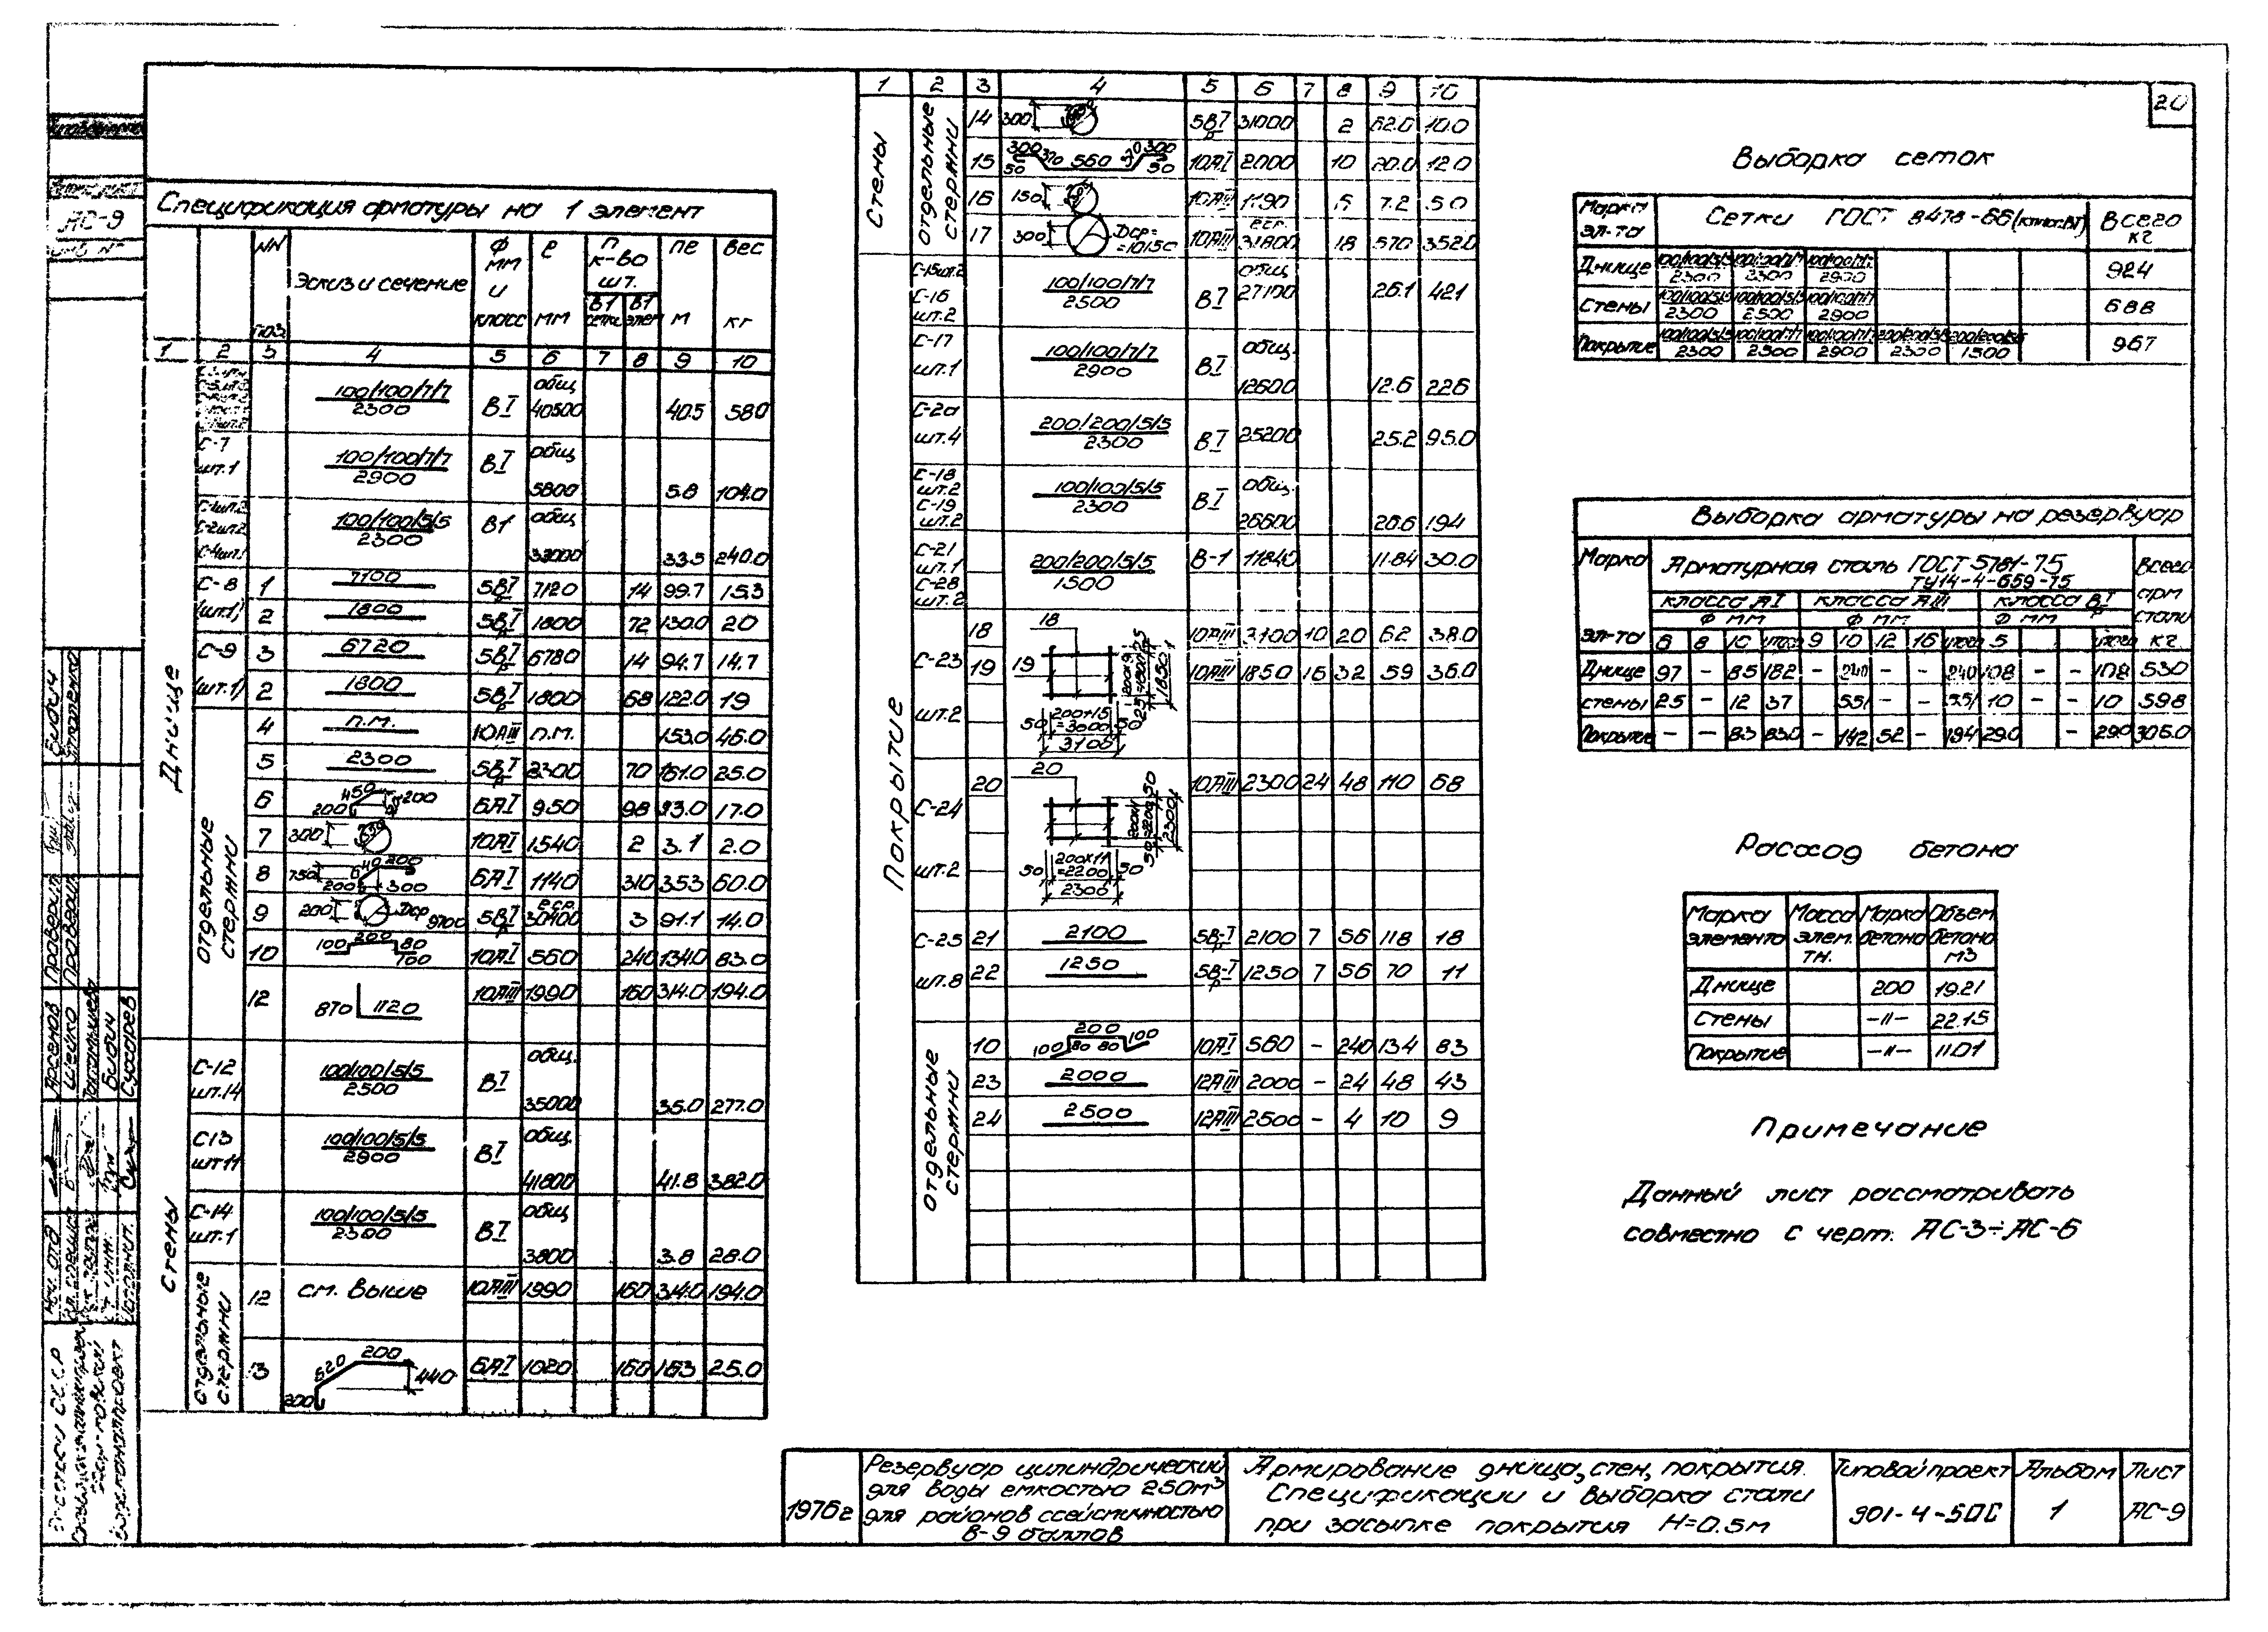 20
АС-9
Спецификация арматуры на 1 элемент
NN поз. Эскиз и сечение Ф мм и класс ℓ мм п к-во шт. в 1 сетке в 1 элем пℓ м вес кг
1 2 3 4 5 6 7 8 9 10
Днище
100/100/7/7 2300 ВI общ 40500 40.5 580
С-7 шт.1 100/100/7/7 2900 ВI общ 5800 5.8 104.0
С-1шт.2 С-2шт.2 С-4шт.1 100/100/5/5 2300 В1 общ 33.5 240.0
С-8 (шт.1) 1 7100 5ВI 7120 14 99.7 15.3
2 1800 5ВI 1800 72 130.0 20
С-9 (шт.1) 3 6720 5ВI 6780 14 94.7 14.7
2 1800 5ВI 1800 68 122.0 19
отдельные стержни
4 п.м. 10АIII п.м. 153.0 46.0
5 2300 5ВI 2300 70 161.0 25.0
6 450 200 200 6АI 950 98 93.0 17.0
7 300 10АI 1540 2 3.1 2.0
8 750 200 300 200 6АI 1140 310 353 60.0
9 200 Дср 9700 5ВI ℓср. 30400 3 91.1 14.0
10 100 200 80 100 10АI 560 240 134.0 83.0
12 870 1120 10АIII 1990 160 314.0 194.0
Стены
С-12 шт.14 100/100/5/5 2500 ВI общ. 35000 35.0 277.0
С13 шт11 100/100/5/5 2900 ВI общ. 41800 41.8 382.0
С-14 шт.1 100/100/5/5 2300 ВI общ 3800 3.8 28.0
отдельные стержни
12 см. выше 10АIII 1990 160 314.0 194.0
13 200 620 200 440 6АI 1020 160 163 25.0
1 2 3 4 5 6 7 8 9 10
Стены
отдельные стержни
14 300 5ВI 31000 2 62.0 10.0
15 50 300 370 560 370 300 50 10АI 2000 10 20.0 12.0
16 150 10АIII 1190 6 7.2 5.0
17 300 Дср= =10150 10АIII ℓср. 31800 18 570 352.0
Покрытие
С-15шт.2 С-16 шт.2 100/100/7/7 2500 ВI общ 27100 26.1 421
С-17 шт.1 100/100/7/7 2900 ВI общ. 12600 12.6 226
С-20 шт.4 200/200/5/5 2300 ВI 25200 25.2 95.0
С-18 шт.2 С-19 шт.2 100/100/5/5 2300 ВI общ. 26600 26.6 194
С-21 шт.1 С-28 шт.2 200/200/5/5 1500 В-1 11840 11.84 30.0
С-23 шт.2 18 10АIII 3100 10 20 62 38.0
19 10АIII 1850 16 32 59 36.0
18 19 50 200×15 =3000 50 3100 1850
С-24 шт.2 20 10АIII 2300 24 48 110 68
20 50 200×11 =2200 50 2300 50 200×11 =2200 50 2300
С-25 шт.8 21 2100 5В-I 2100 7 56 118 18
22 1250 5В-I 1250 7 56 70 11
отдельные стержни
10 100 200 80 80 100 10АI 560 – 240 134 83
23 2000 12АIII 2000 – 24 48 43
24 2500 12АIII 2500 – 4 10 9
Выборка сеток
Марка эл-та Сетки ГОСТ 8478-66 (класс ВI) Всего кг
Днище 100/100/5/5 2300 100/100/7/7 2300 100/100/7/7 2900 924
Стены 100/100/5/5 2300 100/100/5/5 2500 100/100/7/7 2900 688
Покрытие 100/100/5/5 2300 100/100/7/7 2500 100/100/7/7 2900 200/200/5/5 2300 200/200/5/5 1500 967
Выборка арматуры на резервуар
Марка эл-та Арматурная сталь ГОСТ 5781-75 Всего арм стали кг
ТУ14-4-659-75
класса АI класса АIII класса ВI
Ф мм Ф мм Ф мм
6 8 10 итого 9 10 12 16 итого 5 итого
Днище 97 – 85 182 – 240 – – 240 108 – – 108 530
стены 25 – 12 37 551 – – 551 10 – – 10 598
Покрытие – – 83 83.0 – 142 52 – 194 29.0 – 29.0 306.0
Расход бетона
Марка элемента Масса элем. тн. Марка бетона Объем бетона м3
Днище 200 19.21
Стены –"– 22.15
Покрытие –"– 11.01
Примечание
Данный лист рассматривать
совместно с черт. АС-3÷АС-6
Арсенов
Шейко
Бидич
Сухарев
Проверил
Провел
Нач. отд
Исполнит.
Госстрой СССР
1976г
Резервуар цилиндрический
для воды емкостью 250м3
для районов ссейсмичностью
8-9 баллов
Армирование днища, стен, покрытия.
Спецификации и выборка стали
при засыпке покрытия Н=0.5м
Типовой проект
901-4-50С
Альбом
1
Лист
АС-9